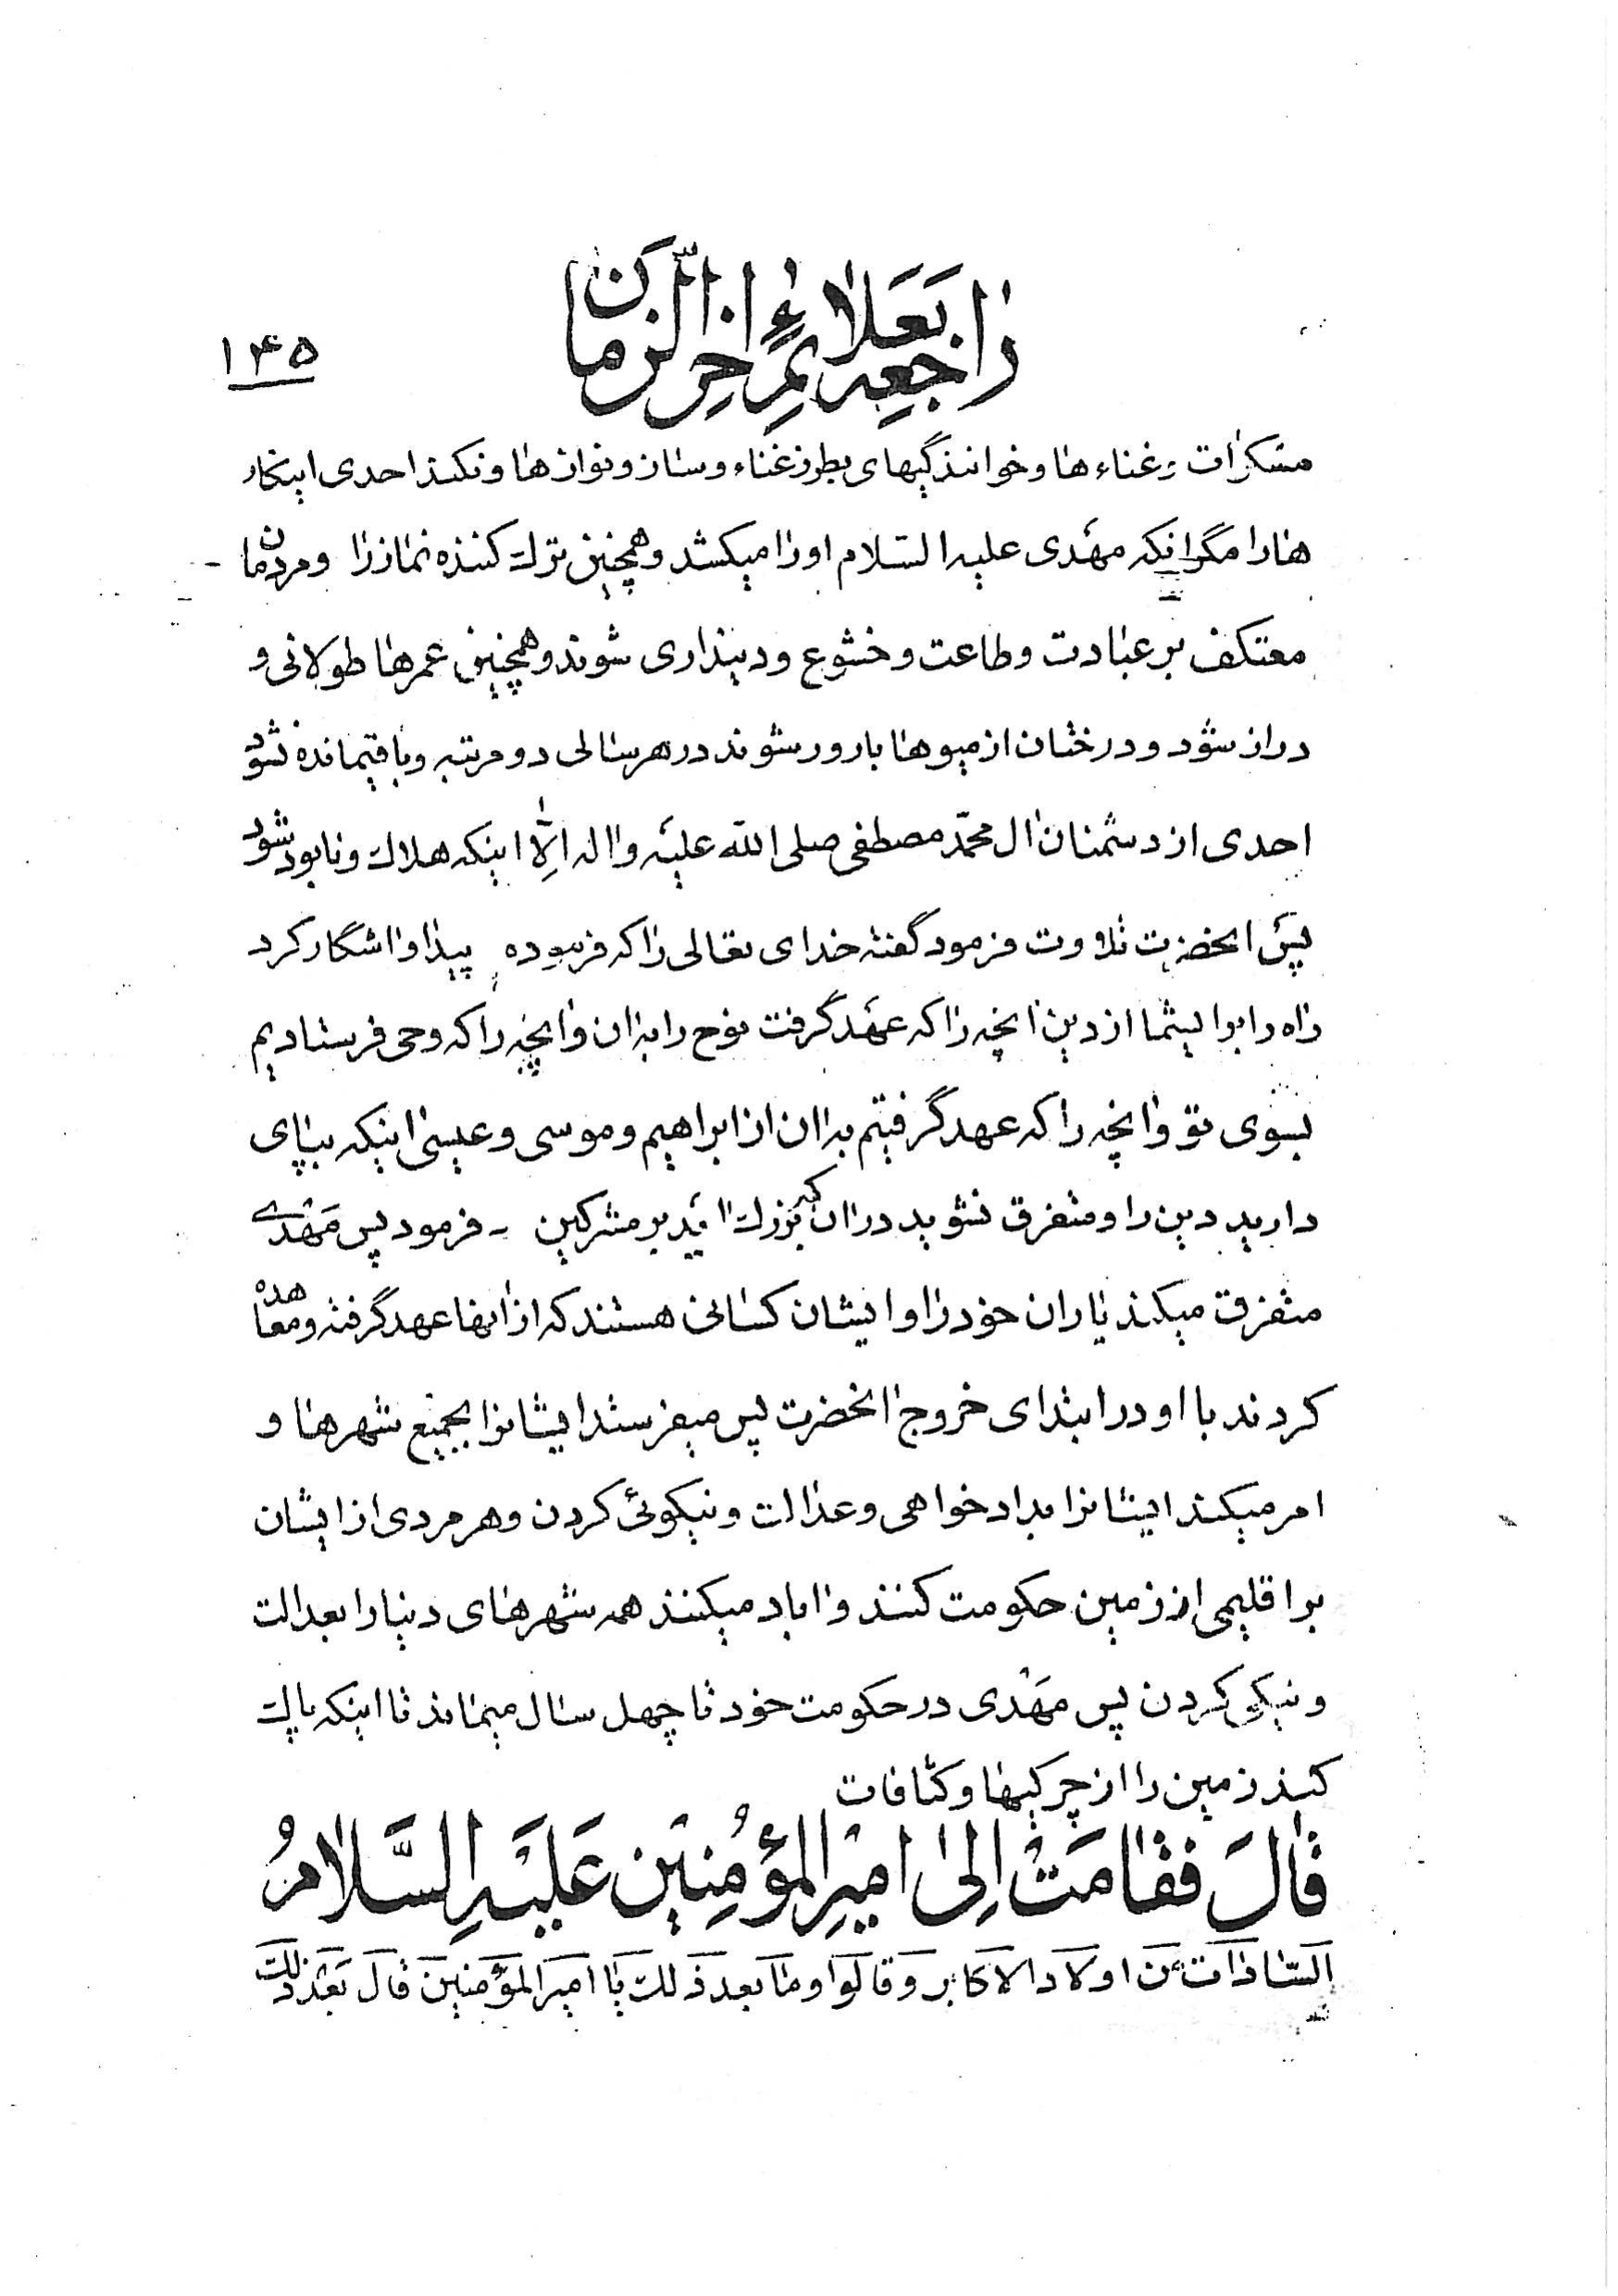 راجعه بعلائم اخر الزمان
۱۴۵
مسکرات و غناء ها و خوانندگیهای بطرز غناء و ساز و نوازها و نکند احدی اینکار
هارا مگر انکه مهدی علیه السلام اورا میکشد و همچنین ترك کننده نماز را و مردمان
معتکف بر عبادت و طاعت و خشوع و دینداری شوند و همچنین عمرها طولانی و
دراز شود و درختان از میوها بارور شوند در هر سالی دو مرتبه و باقیمانده نشود
احدی از دشمنان ال محمّد مصطفی صلی الله علیه واله اِلّا اینکه هلاك و نابود شود
پس انحضرت تلاوت فرمود گفته خدای تعالی را که فرموده پیدا و اشگار کرد
راه را برایشما از دین انچه را که عهد گرفت نوح را بدان وانچه را که وحی فرستادیم
بسوی تو وانچه را که عهد گرفتیم بدان از ابراهیم و موسی و عیسی اینکه بپای
دارید دین را و متفرق نشوید در ان که بزرك اید بر مشرکین - فرمود پس مهدی
متفرق میکند یاران خود را و ایشان کسانی هستند که از انها عهد گرفته و معاهده
کردند با او در ابتدای خروج انحضرت پس میفرستد ایشانرا بجمیع شهرها و
امر میکند ایشانرا بداد خواهی و عدالت و نیکوئی کردن و هر مردی از ایشان
بر اقلیمی از زمین حکومت کنند و اباد میکنند همه شهرهای دنیا را بعدالت
و نیکی کردن پس مهدی در حکومت خود تا چهل سال میماند تا اینکه پاك
کند زمین را از چرکیها و کثافات
قالَ فقامَتْ اِلیٰ امیرِ المؤمِنین عَلَیهِ السَّلامُ
السّادات من اولاد الاکابر وقالوا وما بعد ذلك یا امیر المؤمنین قال بعد ذلك